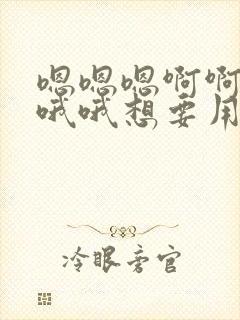 嗯嗯嗯啊啊
哦哦想要用
冷眼旁官